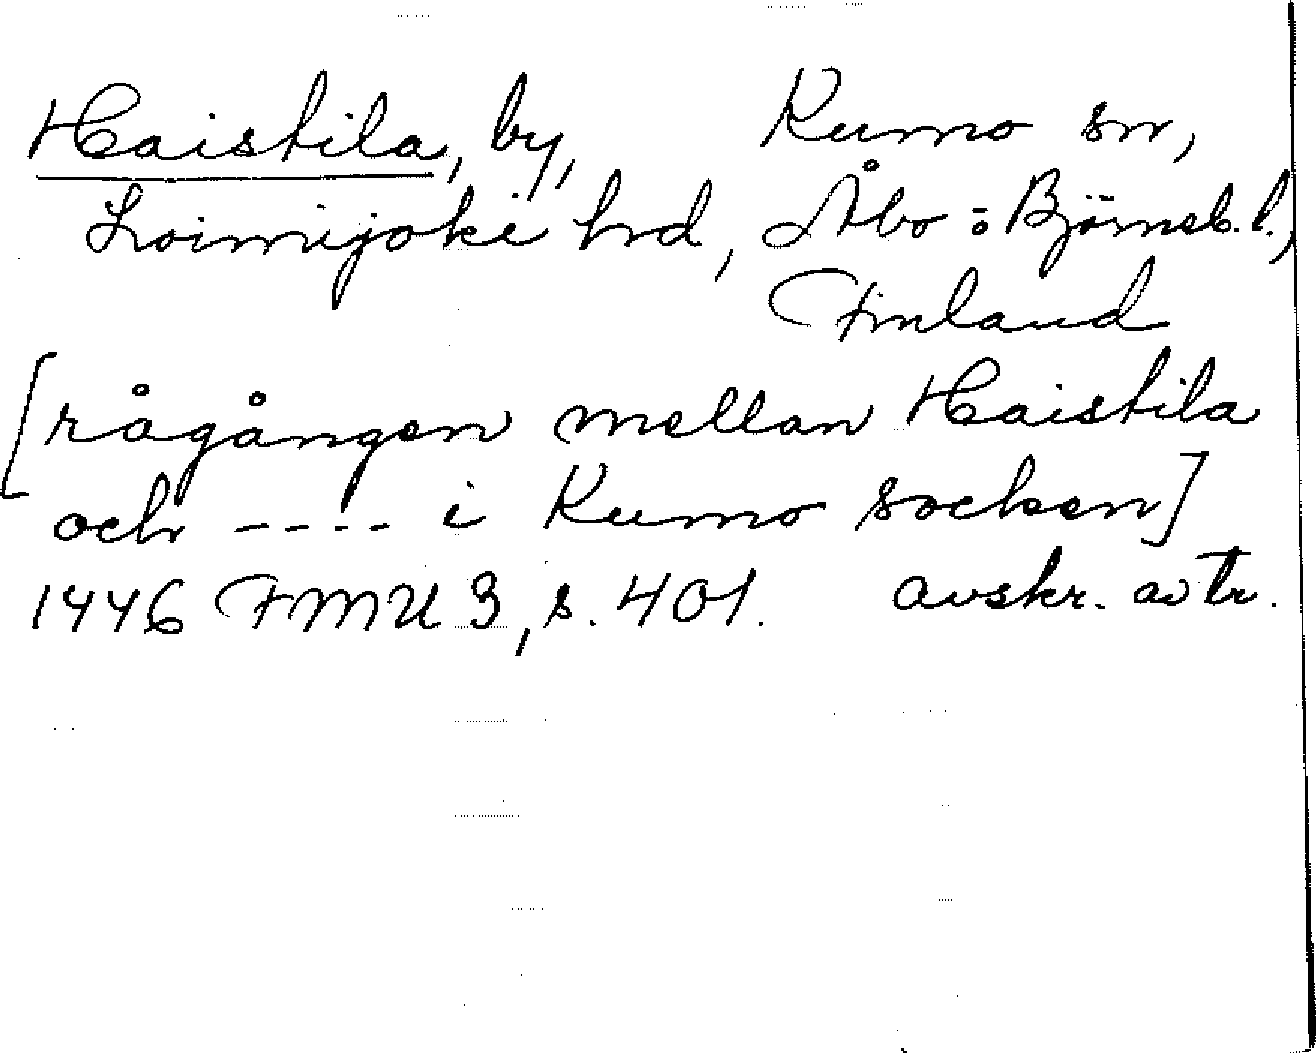 Haistila, by, Kumo sn,
Loimijoki hd, Åbo o Björneb. l.,
Finland
[rågången mellan Haistila
och ---- i Kumo socken]
1446 FMU 3, s. 401. avskr. av tr.